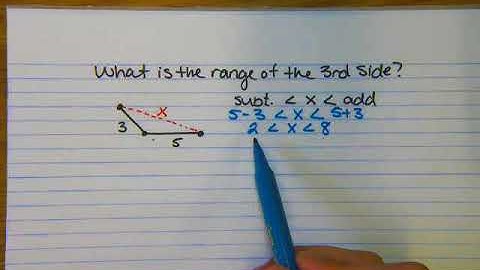 What is the range of the 3rd side?
subt. < x < add
5-3 < x < 5+3
2 < x < 8
x
3
5